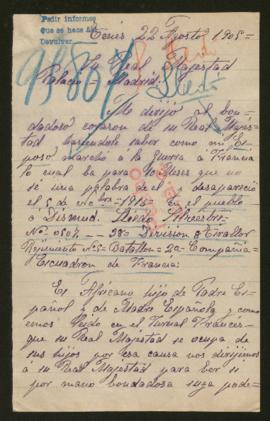 Pedir informes
que se hace así
Devolver.
Tenés 22 Agosto 1915
95867
Su Real Majestad
Palacio Madrid
Lledó
Me dirijo al bon-
dadoso corazon de su Real Majes-
tad haciendole saber como mi Es-
poso marcho a la guerra a Francia
lo cual ba para 10 meses que no
se una palabra de el desaparecio
el 5 de 1915 en el pueblo
a Dismud. Lledó Silvestre
Nº 38º Division a Tirallor
Regimiento Nº 2 Batallon 2ª Compañia
Escuadron de Francia.
Es Africano hijo de Padre Es-
pañol y de Madre Española y como
emos leido en el Jurnal Frances
que su Real Majestad se ocupa de
sus hijos por esa causa nos dirijimos
a su Real Majestad para ber si
por mano bondadosa suya pode-